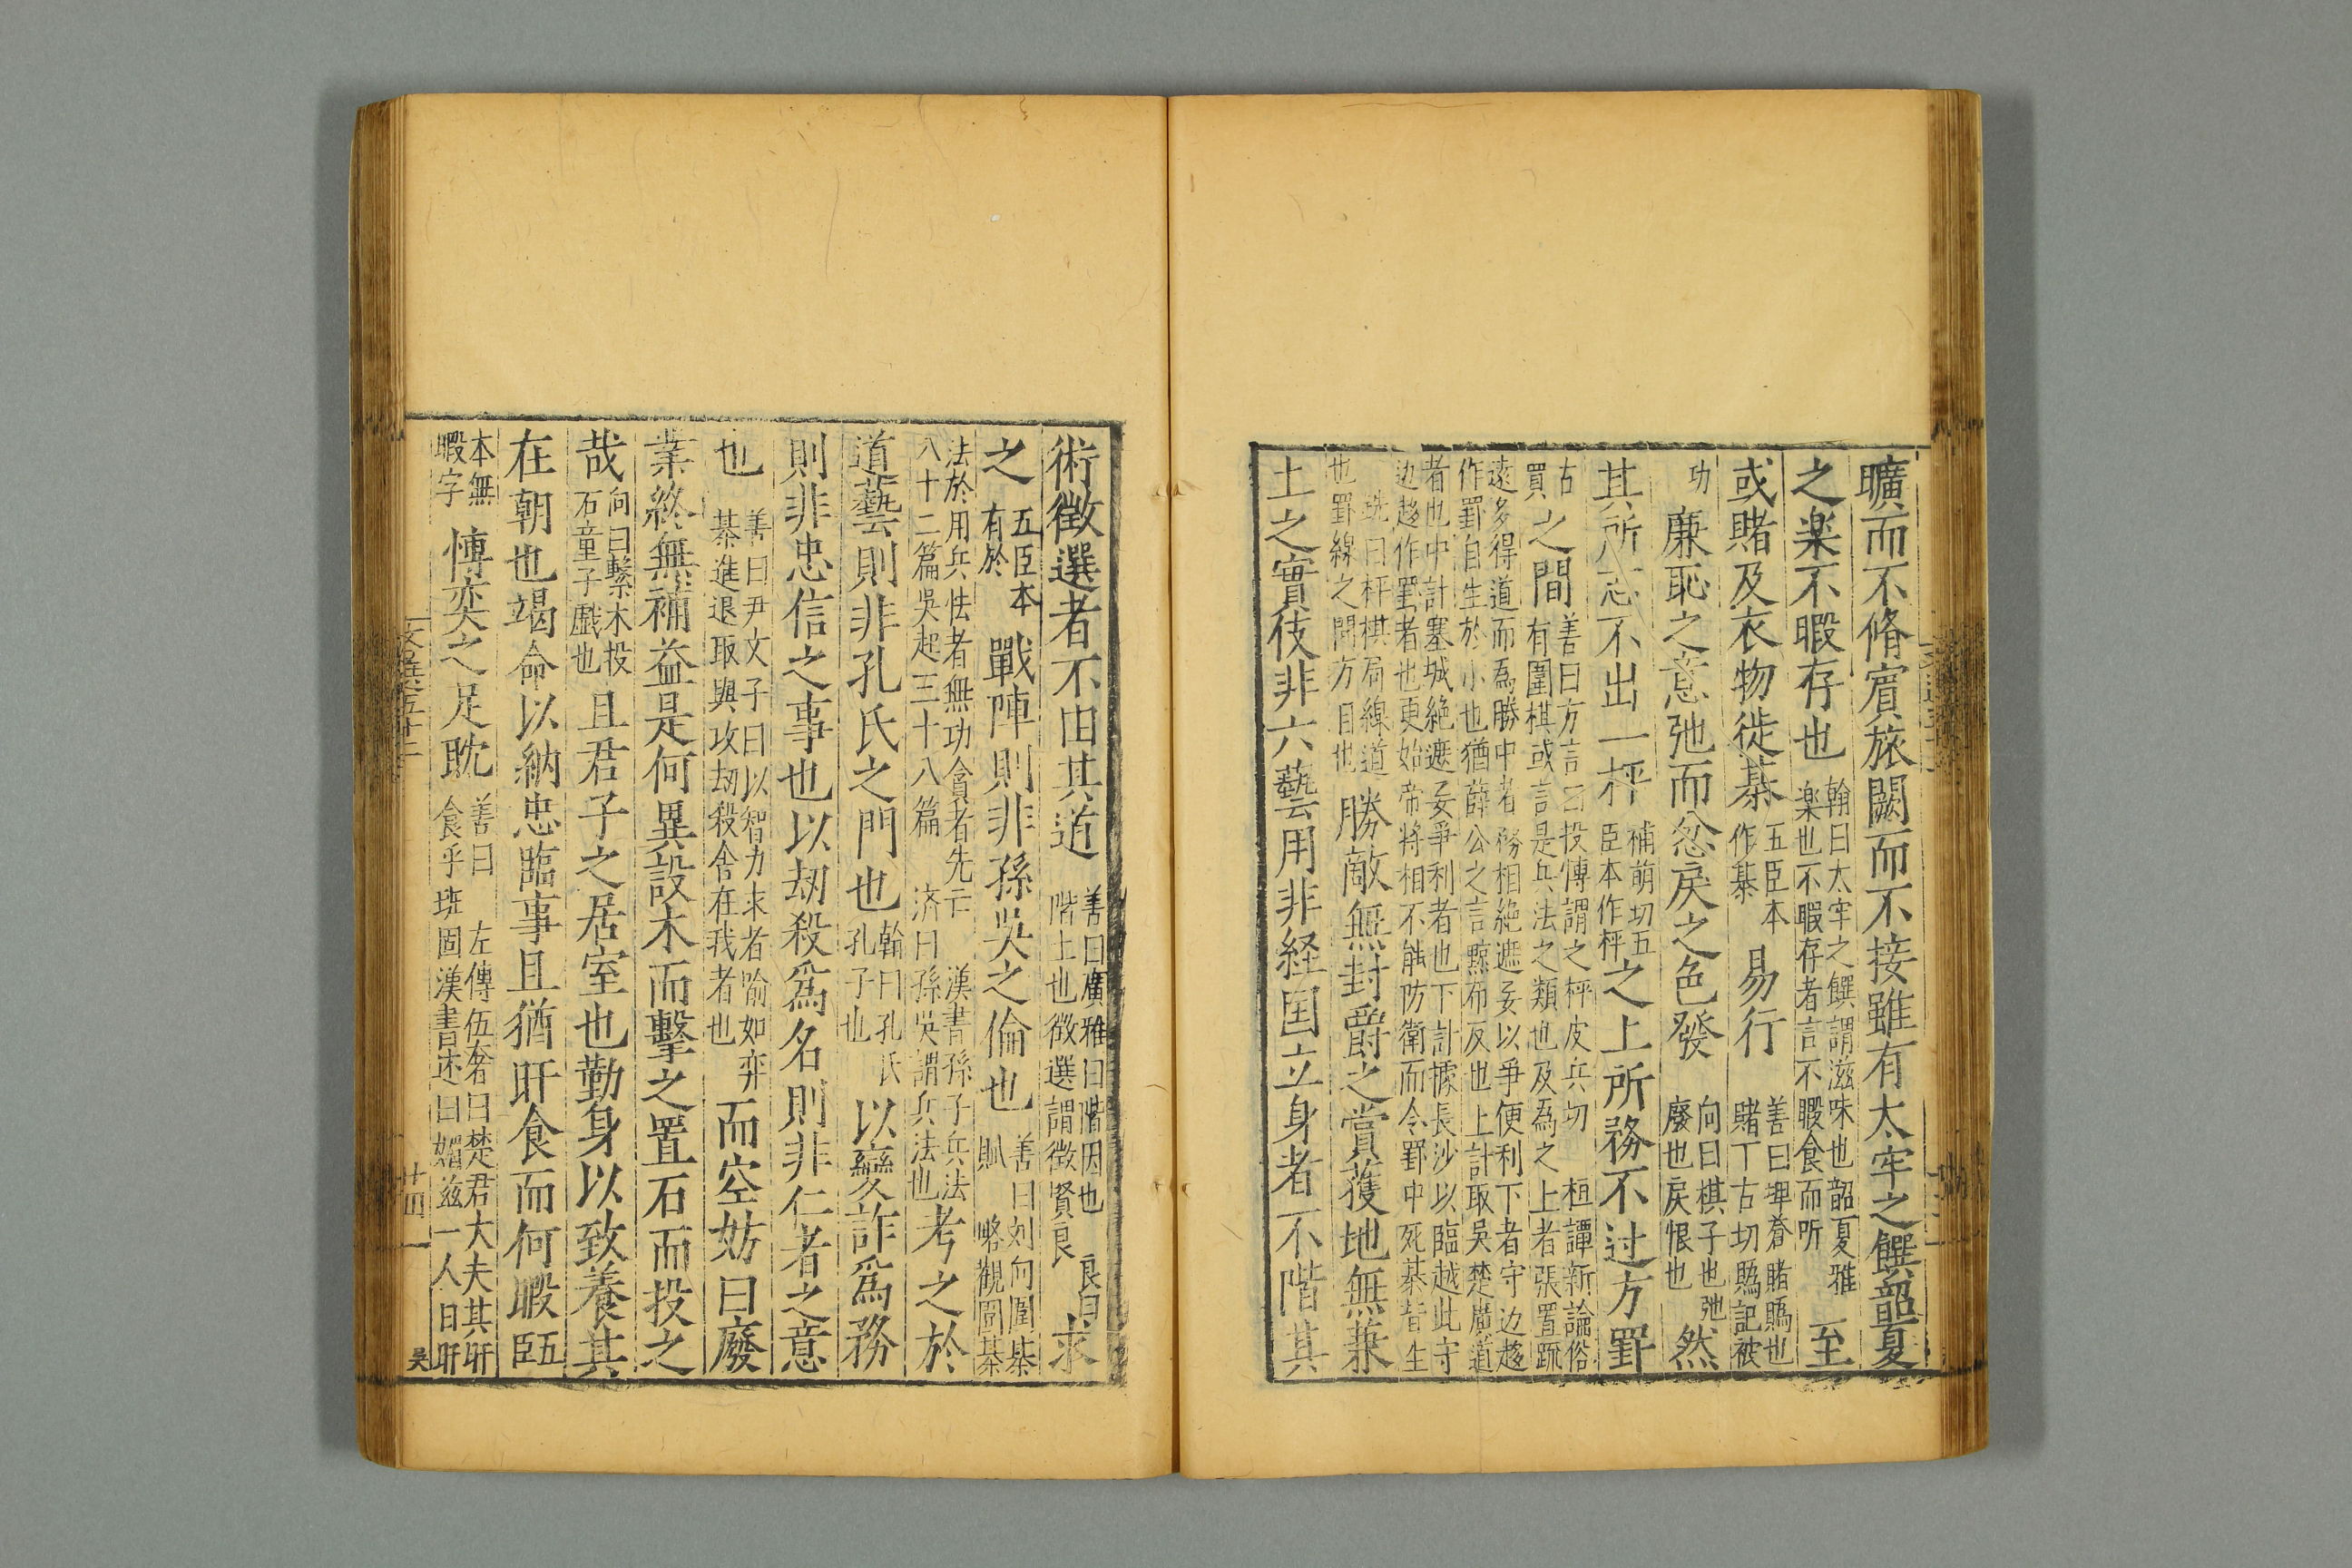 曠而不脩賔旅闕而不接雖有太牢之饌韶夏
之楽不暇存也翰曰太牢之饌謂滋味也韶夏雅楽也不暇存者言不暇食而听至
或賭及衣物徙棊五臣本作棊易行善曰埤蒼賭賜也賭丁古切賜記被
功廉恥之意弛而忿戾之色發向曰棋子也弛廢也戾恨也然
其所志不出一枰補萌切五臣本作枰之上所務不过方罫
古買之間善曰方言曰投慱謂之枰皮兵切桓譚新論俗有圍棋或言是兵法之類也及為之上者張置疏
遠多得道而為勝中者務相絶遮妄以爭便利下者守边趍作罫自生於小也猶薛公之言黥布反也上計取吳楚廣道
者也中計塞城絶遮妄爭利者也下計據長沙以臨越此守边趍作罫者也更始帝將相不能防衛而令罫中死棊皆生
也罫線之間方目也銑曰枰棋局線道勝敵無封爵之賞獲地無兼
土之實伎非六藝用非経国立身者不階其
術徵選者不由其道善曰廣雅曰階因也階上也徵選謂徵賢良良曰求
之五臣本有於戰陣則非孫吳之倫也善曰刘向圍棊賦略觀圍棊
法於用兵怯者無功貪者先亡漢書孫子兵法八十二篇吳起三十八篇済曰孫吳謂兵法也考之於
道藝則非孔氏之門也翰曰孔氏孔子也以變詐爲務
則非忠信之事也以刼殺爲名則非仁者之意
也善曰尹文子曰以智力求者喻如弈棊進退取與攻刼殺舍在我者也而空妨曰廢
業終無補益是何異設木而擊之置石而投之
哉向曰繫木投石童子戲也且君子之居室也勤身以致養其
在朝也竭命以納忠臨事且猶旰食而何暇五臣
本無暇字慱奕之足耽善曰左傳伍奢曰楚君大夫其旰食乎班固漢書述曰媚兹一人日旰
文選五十二
廿四
吴